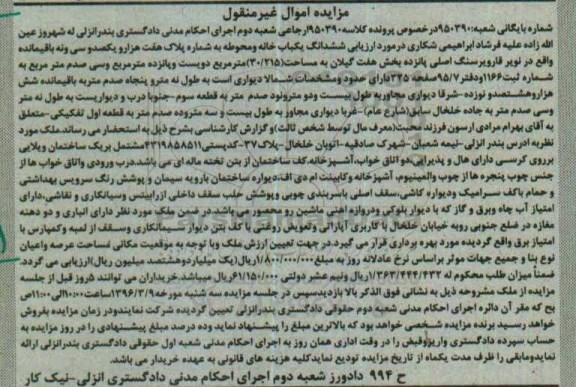 مزایده اموال غیرمنقول
شماره بایگانی شعبه:۹۵۰۳۹۰درخصوص پرونده کلاسه۹۵۰۳۹۰رجاعی شعبه دوم اجرای احکام مدنی دادگستری بندرانزلی له شهروز عین
الله زاده علیه فرشاد ابراهیمی شکاری درمورد ارزیابی ششدانگ یکباب خانه ومحوطه به شماره پلاک هفت هزارو یکصدو سی ونه باقیمانده
واقع در نویر قاروپرسنگ اصلی پانزده بخش هفت گیلان به مساحت(۳۰/۲۱۵)مترمربع دویست وپانزده مترمربع وسی صدم متر مربع به
شماره ثبت۱۱۶۶دفتر۹۵/۷صفحه ۳۲۵دارای حدود ومشخصات شمالا دیواری است به طول نه مترو پنجاه صدم متربه باقیمانده شش
هزاروهشتصدو نوزده -شرقا دیواری مجاوربه طول بیست ودو مترونود صدم متر به قطعه سوم -جنوبا درب و دیواریست به طول نه متر
وسی صدم متر به جاده خلخال سابق(شارع عام)-غربا دیواری مجاور به طول بیست و سه متروده صدم متر به قطعه اول تفکیکی-متعلق
به آقای بهرام مرادی ارسون فرزند محبت(معرف مال توسط شخص ثالث)و گزارش کارشناسی بشرح ذیل به استحضار می رساند.ملک مورد
نظربه ادرس بندر انزلی -نیمه شعبان -شهرک صادقیه -اتوبان خلخال -پلاک۳۷-کدپستی۴۳۱۹۸۵۸۵۱۱مشتمل بریک ساختمان ویلایی
برروی کرسی دارای هال و پذیرایی،دو اتاق خواب،آشپزخانه.کف ساختمان از بتن تخته ماله ای می باشد.درب ورودی واتاق خواب ها از
جنس چوب پنجره ها از چوب والمینیوم، آشپزخانه وکابینت ام دی اف،دیواره ساختمان بارویه سیمان و پوشش رنگ سرویس بهداشتی
و حمام باکف سرامیک ودیواره کاشی،سقف اصلی باسربندی چوبی وپوشش حلب سقف داخلی ازرابیتس وسیمانکاری و نقاشی،دارای
امتیاز آب چاه وبرق و گاز که با دیوار بلوکی ودروازه اهنی ماشین رو محصور می باشد.در ضمن ملک مورد نظر دارای انباری و دو دهنه
مغازه در ضلع جنوبی روبه خیابان خلخال با کاربری آپاراتی وتعویض روغنی با کف بتن دیوار سیمانکاری وسقف از لمبه وکمپارس با
امتیاز برق واقع گردیده مورد بهره برداری قرار می گیرد.در جهت تعیین ارزش ملک وبا توجه به موقعیت مکانی مساحت عرصه واعیان
نوع بنا و جمیع جهات موثر براساس نرخ عادلانه روز به مبلغ۱/۸۰۰/۰۰۰/۰۰۰ریال(یک میلیاردوهشتصد میلیون ریال)ارزیابی می گردد
ضمناً میزان طلب محکوم له ۱/۳۶۳/۴۴۴/۴۳۲ریال ونیم عشر دولتی ۶۱/۱۵۰/۰۰۰ریال میباشد.خریداران می توانند ۵روز قبل از جلسه
مزایده از ملک مشروحه ذیل به نشانی فوق الذکر بالا بازدیدسپس در جلسه مزایده سه شنبه مورخه۱۳۹۶/۳/۹ساعت۱۰:۰۰الی۱۱:۰۰ص
بح که مقر آن دائره اجرای احکام مدنی شعبه دوم حقوقی دادگستری بندرانزلی تعیین گردیده شرکت نمایندودر زمان مزایده بفروش
خواهد رسید برنده مزایده شخصی خواهد بود که بالاترین مبلغ را پیشنهاد نماید وده درصد مبلغ پیشنهادی را در روز مزایده به
حساب سپرده دادگستری واریزوفیش را در وقت اداری همان روز به اجرای احکام مدنی شعبه اول حقوقی دادگستری بندرانزلی ارائه
نمایدومابقی را ظرف مدت یکماه از تاریخ مزایده تودیع نمایدکلیه هزینه های قانونی به عهده خریدار می باشد.
ح ۹۹۴ دادورز شعبه دوم اجرای احکام مدنی دادگستری انزلی-نیک کار